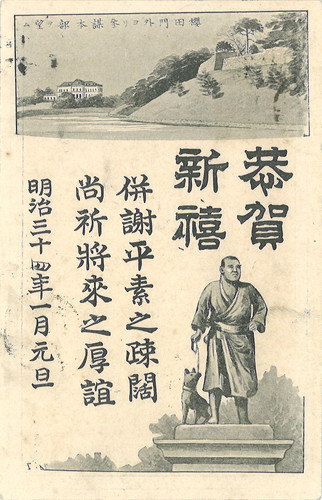 櫻田門外ヨリ參謀本部ヲ望ム
恭賀
新禧
併謝平素之疎闊
尚祈將來之厚誼
明治三十四年一月元旦